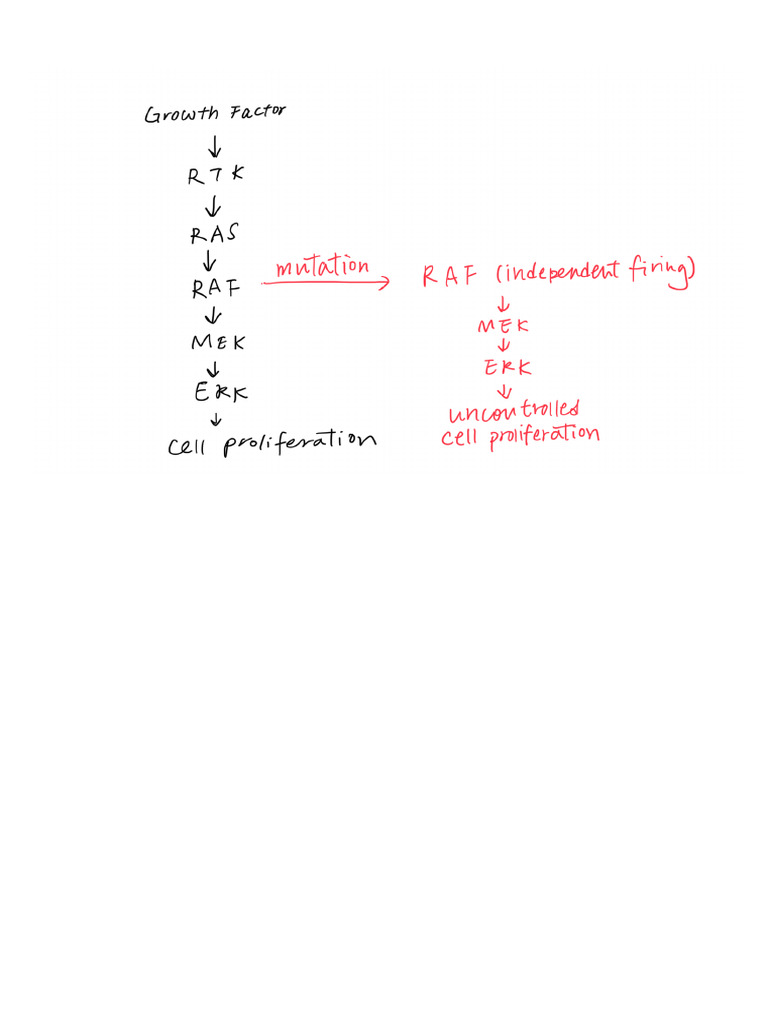 Growth Factor
↓
RTK
↓
RAS
↓
RAF
↓
MEK
↓
ERK
↓
cell proliferation
mutation
→
RAF (independent firing)
↓
MEK
↓
ERK
↓
uncontrolled
cell proliferation